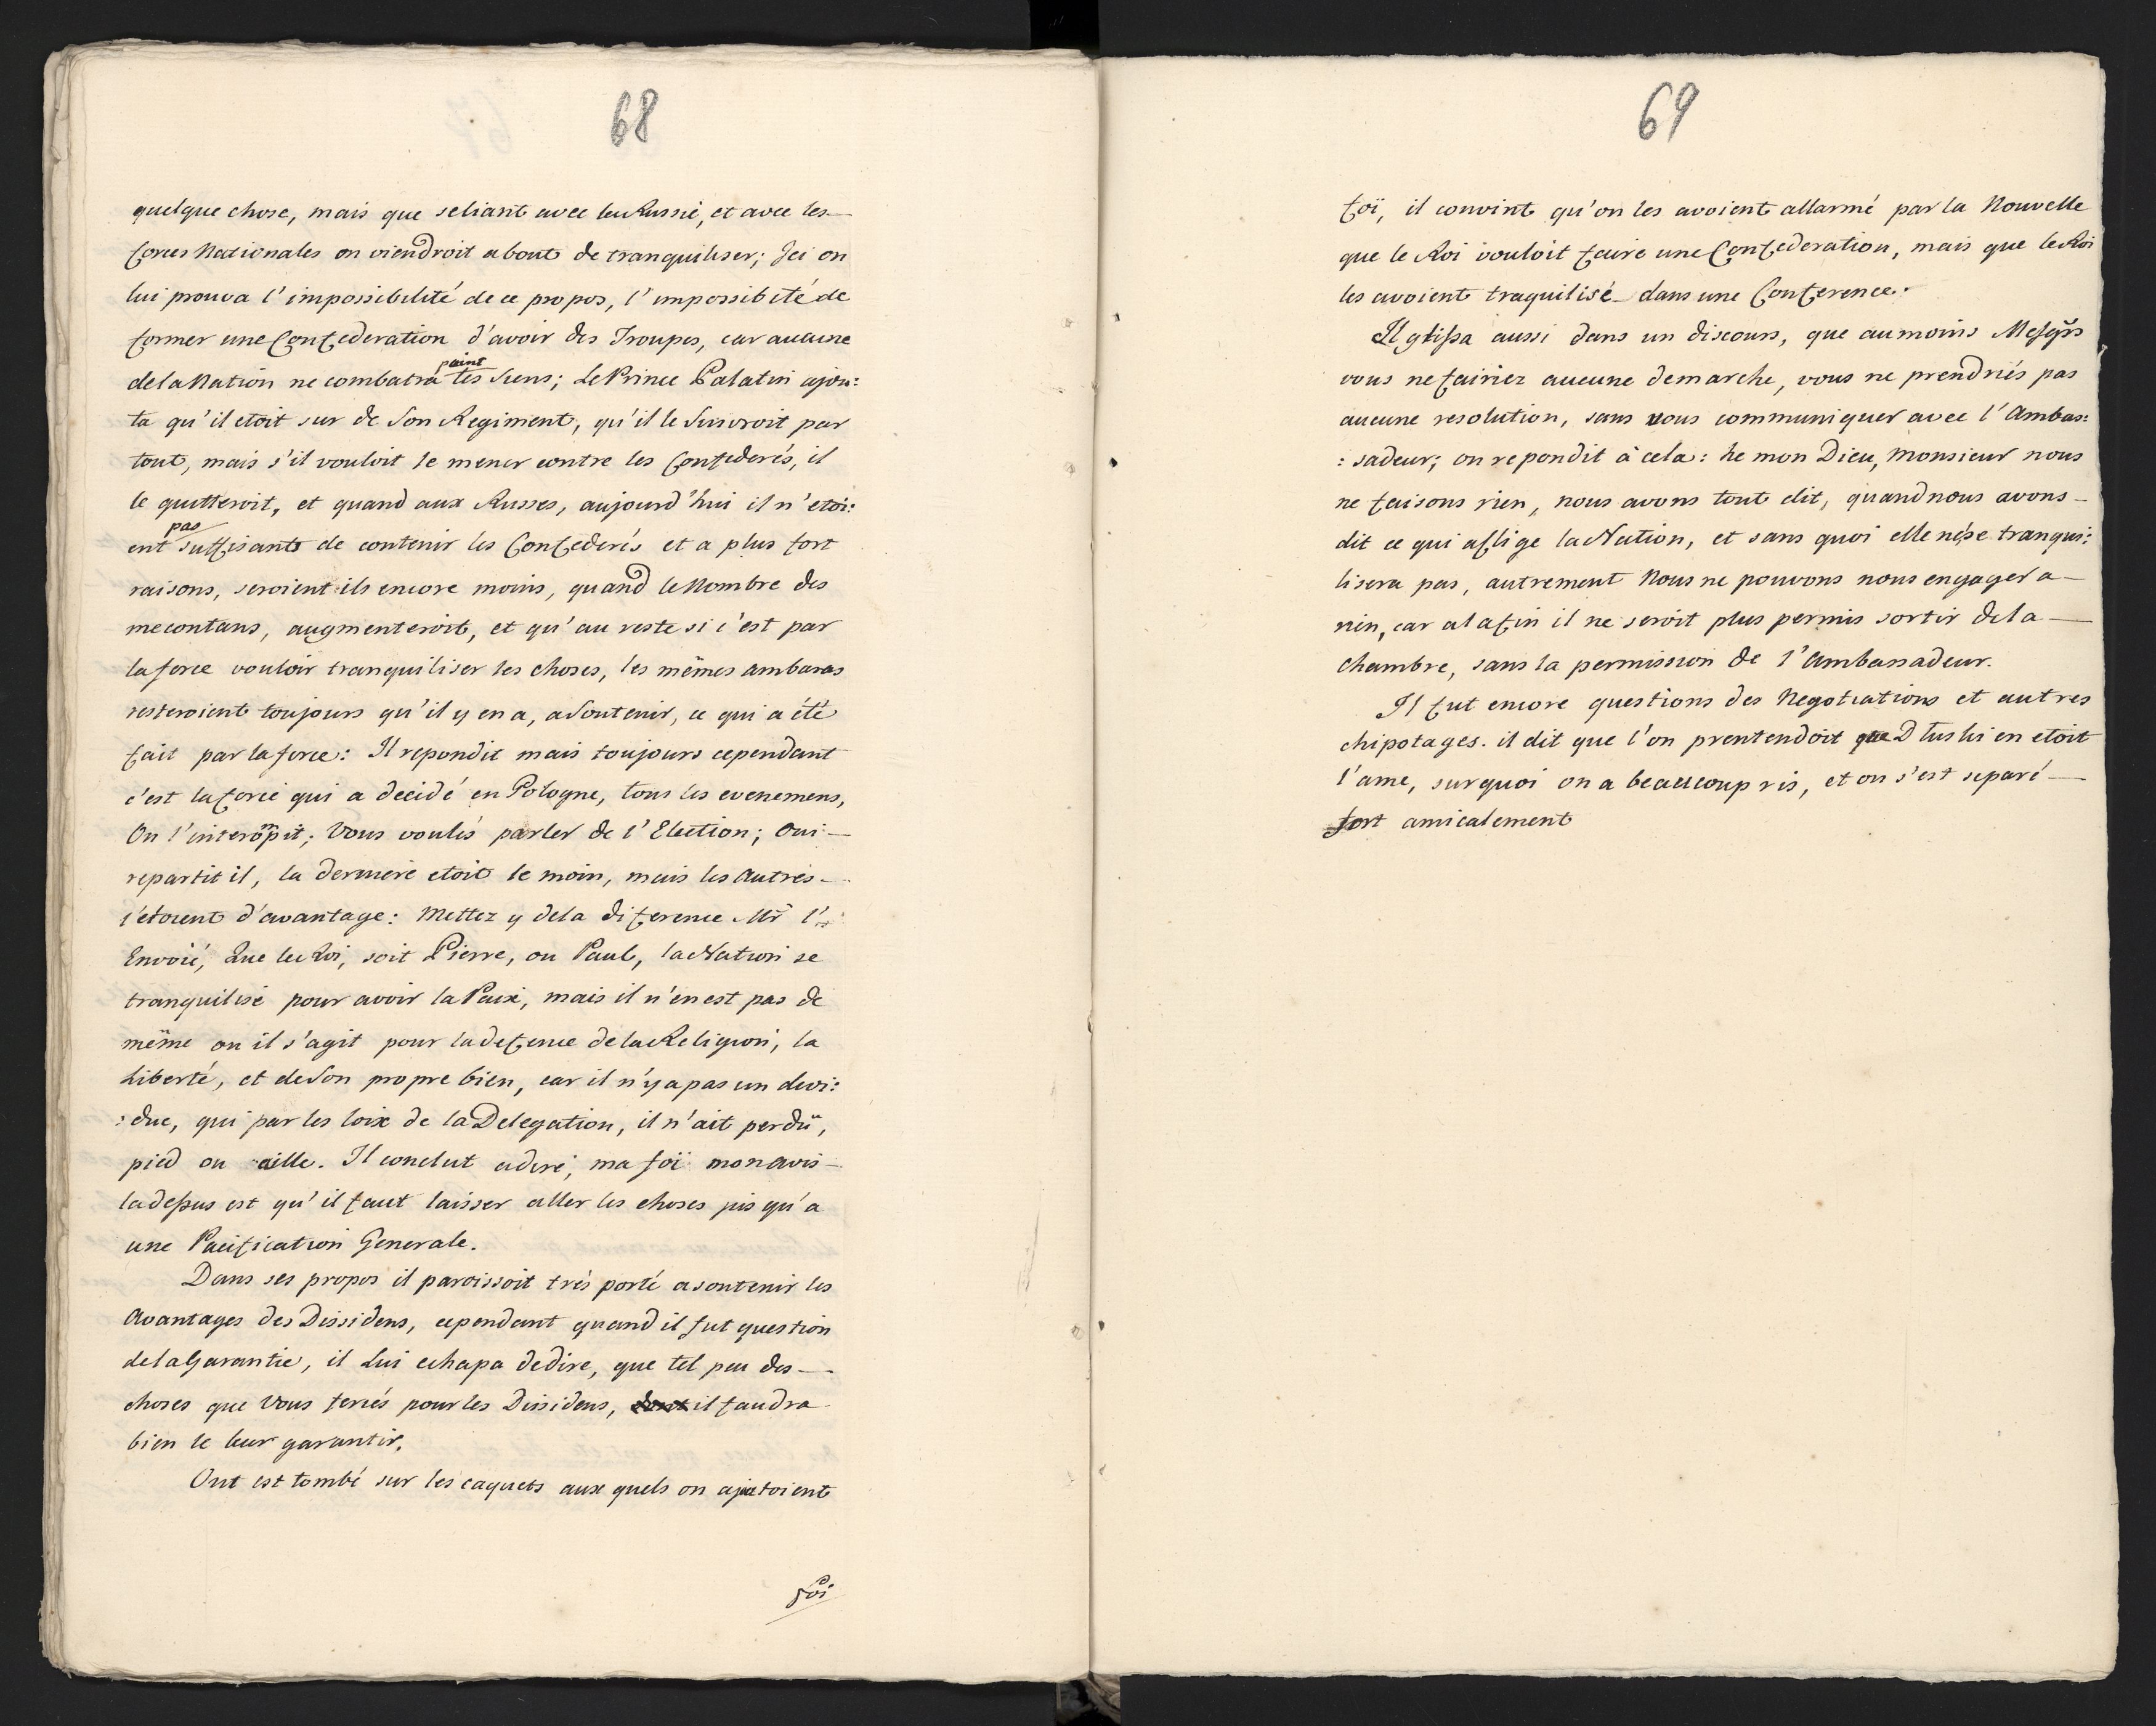 68
quelque chose, mais que seliant avec la Russie, et avec les
forces Nationales on viendroit about de tranquiliser; Ici on
lui prouva l'impossibilité de ce propos, l'impossibité de
former une Confederation d'avoir des Troupes, car aucune
dela Nation ne combatra point les Siens; Le Prince Palatin ajou:
ta qu'il etoit sur de Son Regiment, qu'il le Suivroit par
tout, mais s'il vouloit le mener contre les Confederés, il
le quitteroit, et quand aux Russes, aujourd'hui il n'etoi:
ent pas suffisants de contenir les Confederés et a plus fort
raisons, seroient ils encore moins, quand le Nombre des
mecontans, augmenteroit, et qu'au reste si c'est par
la force vouloir tranquiliser les choses, les mêmes ambaras
resteroient toujours qu'il y en a, a Soutenir, ce qui a été
fait par la force: Il repondit mais toujours cependant
c'est la force qui a decidé en Pologne, tous les evenemens,
On l'interompit; Vous voulés parler de l'Election; Oui
repartit il, la derniere etoit le moin, mais les Autres
l'etoient d'avantage: Mettez y dela diference Mr l'
Envoié, Que le Roi, soit Pierre, ou Paul, la Nation se
tranquilise pour avoir la Paix, mais il n'en est pas de
même ou il s'agit pour la defence de la Religion, la
Liberté, et de Son propre bien, car il n'y a pas un devi:
:due, qui par les loix de la Delegation, il n'ait perdû,
pied ou aille. Il conclut adire, ma foi mon avis
ladessus est qu'il faut laisser aller les choses jus qu'a
une Pacification Generale.
Dans ses propos il paroissoit très porté a soutenir les
Avantages des Dissidens, cependant quand il fut question
dela Garantie, il Lui echapa dedire, que tel peu des
choses que Vous feriés pour les Dissidens, il faudra
bien le leur garantir.
Ont est tombé sur les caquets aux quels on ajoutoient
foi
69
foï, il convint qu'on les avoient allarmé par la Nouvelle
que le Roi vouloit faire une Confederation, mais que le Roi
les avoient traquilisé dans une Conference.
Il glissa aussi dans un discours, que aumoins Messgrs
vous ne fairiez aucune demarche, vous ne prendriés pas
aucune resolution, sans vous communiquer avec l'Ambas:
:sadeur; on repondit à cela: he mon Dieu, Monsieur nous
ne faisons rien, nous avons tout dit, quand nous avons
dit ce qui aflige la Nation, et sans quoi elle ne se tranqui:
lisera pas, autrement Nous ne pouvons nous engager a
rien, car a la fin il ne seroit plus permis sortir dela
chambre, sans la permission de l'Ambassadeur.
Il fut encore questions des Negotiations et autres
chipotages. il dit que l'on prentendoit que Dluski en etoit
l'ame, surquoi on a beaucoup ris, et on s'est separé
fort amicalement